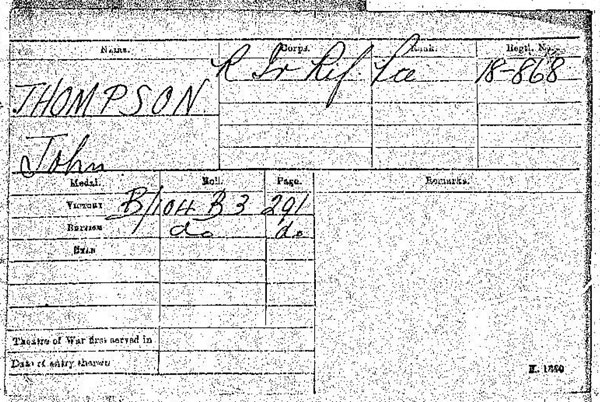 Name. Corps. Rank. Regtl. No.
THOMPSON R Ir Rif. Pte 18-868
John
Medal. Roll. Page. Remarks.
VICTORY B/104 B3 291
BRITISH do do
STAR
Theatre of War first served in
Date of entry therein
K. 1380